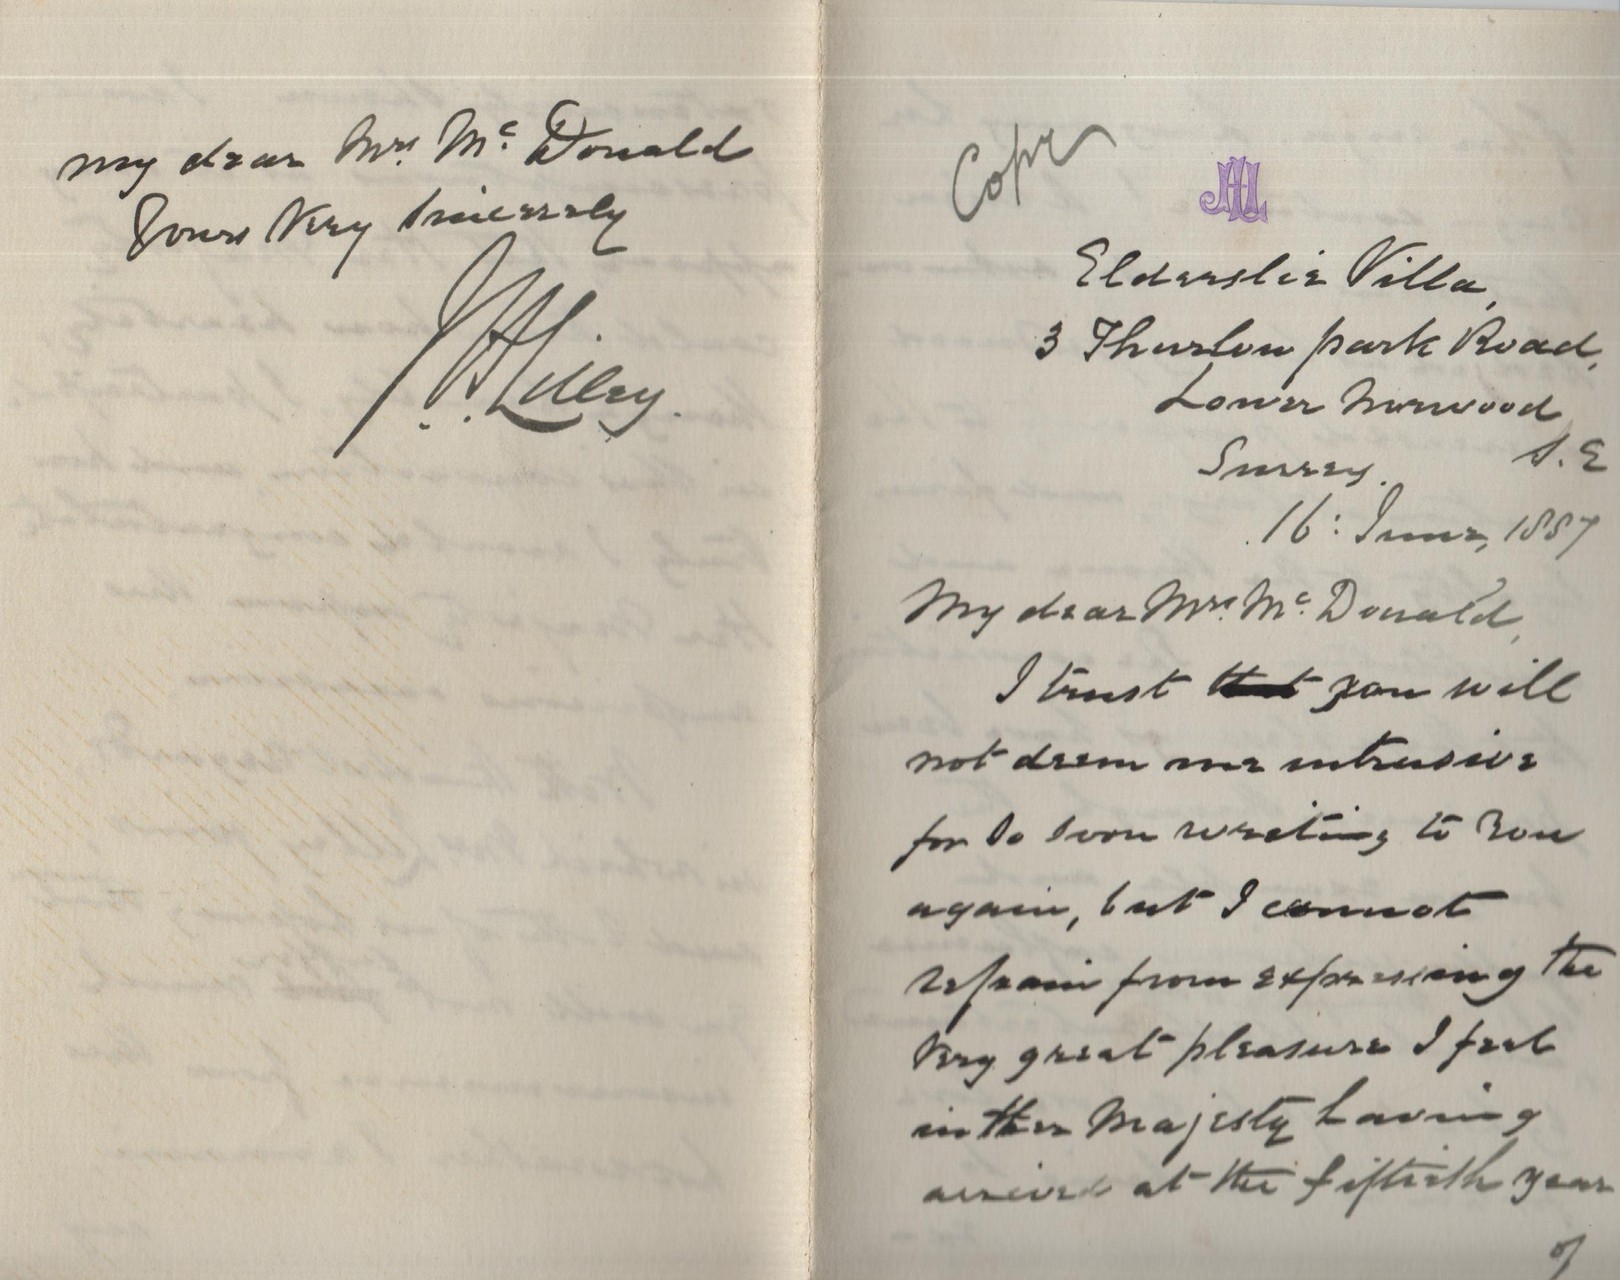 my dear Mrs. Mc. Donald
Yours Very Sincerely
J. A. Lilley.
Copy
Elderslie Villa,
3 Thurlow park Road,
Lower Norwood
S.E
Surrey.
16: June, 1887
My dear Mrs. Mc. Donald,
I trust that you will
not deem me intrusive
for so soon writing to you
again, but I cannot
refrain from expressing the
very great pleasure I feel
in Her Majesty having
arrived at the fiftieth year
of